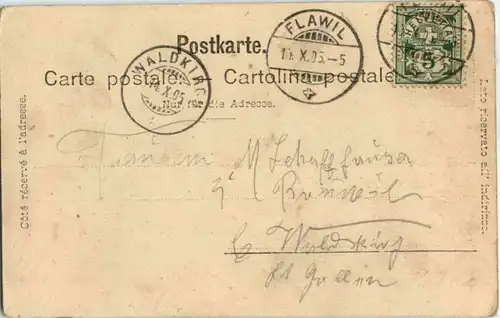 Postkarte.
Carte postale. — Cartolina postale
Nur für die Adresse.
Côté réservé à l'adresse.
Lato riservato all' indirizzo.
WALDKIRCH
X.05
FLAWIL
X.05.-5
HELVETIA
5
Fräulein M Schaffhauser
Waldkirch
St Gallen